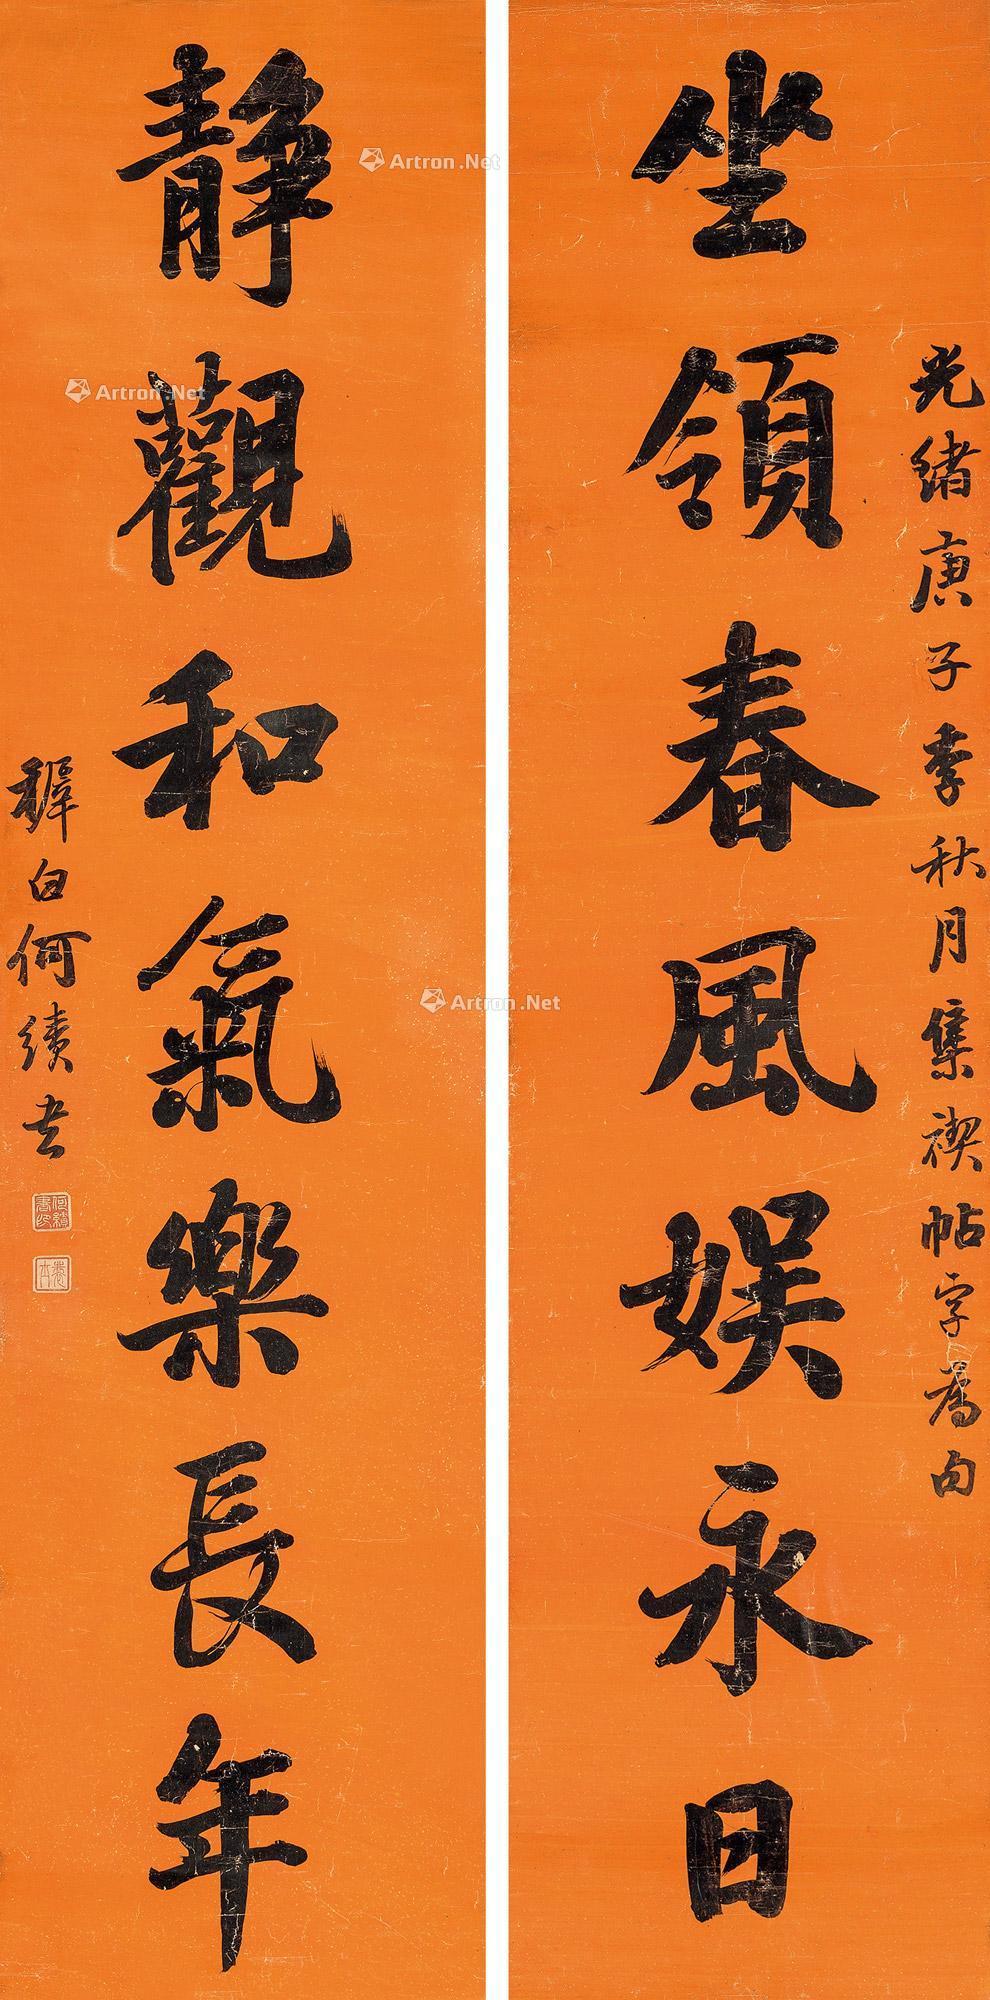 光緒庚子季秋月集禊帖字為句
坐領春風娛永日
靜觀和氣樂長年
白何續書
何績書印
Artron.Net
Artron.Net
Artron.Net